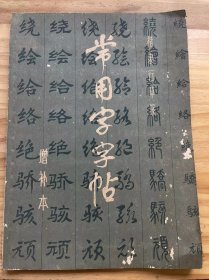 常用字字帖
增补本
绕绘给络绝骄骇顽
绕绘给络绝骄骇顽
绕绘给络绝骄骇顽
繞繪給絡絕驕駭頑